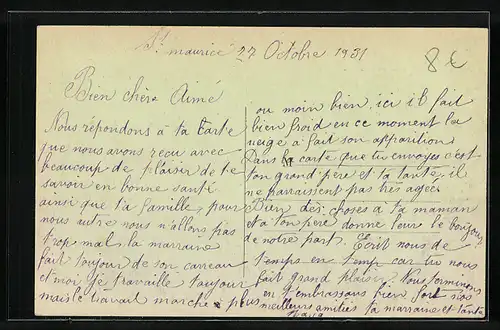 St maurice 27 Octobre 1931
8 €
Bien chère Aimé
Nous répondons à ta carte
que nous avons reçu avec
beaucoup de plaisir de te
savoir en bonne santé
ainsi que ta famille, pour
nous autre nous n'allons pas
trop mal, la marraine
fait toujour de son carreau
et moi je travaille toujour
mais le travail marche plus
ou moin bien, ici il fait
bien froid en ce moment la
neige à fait son apparition
Dans la carte que tu envoyes c'est
ton grand père et ta tante, il
ne parraisent pas très agée
Bien des choses à ta maman
et à ton père donne leur le bonjour
de notre part. Ecrit nous de
temps en temp car tu nous
fait grand plaisir. Nous terminons
en t'embrassans bien fort nos
meilleurs amitiés ta marraine et tante